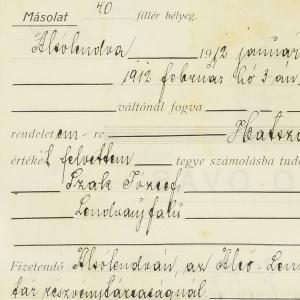 Másolat 40 fillér bélyeg.
Alsólendva 1912 január
1912 február hó 3.-án
váltónál fogva
rendeletem-re Hatszá
értékét felvettem tegye számolásba tudó
Szak József
Lendvaujfalu
Fizetendő Alsólendván, az Alsó-Len
tár részvénytársaságnál.